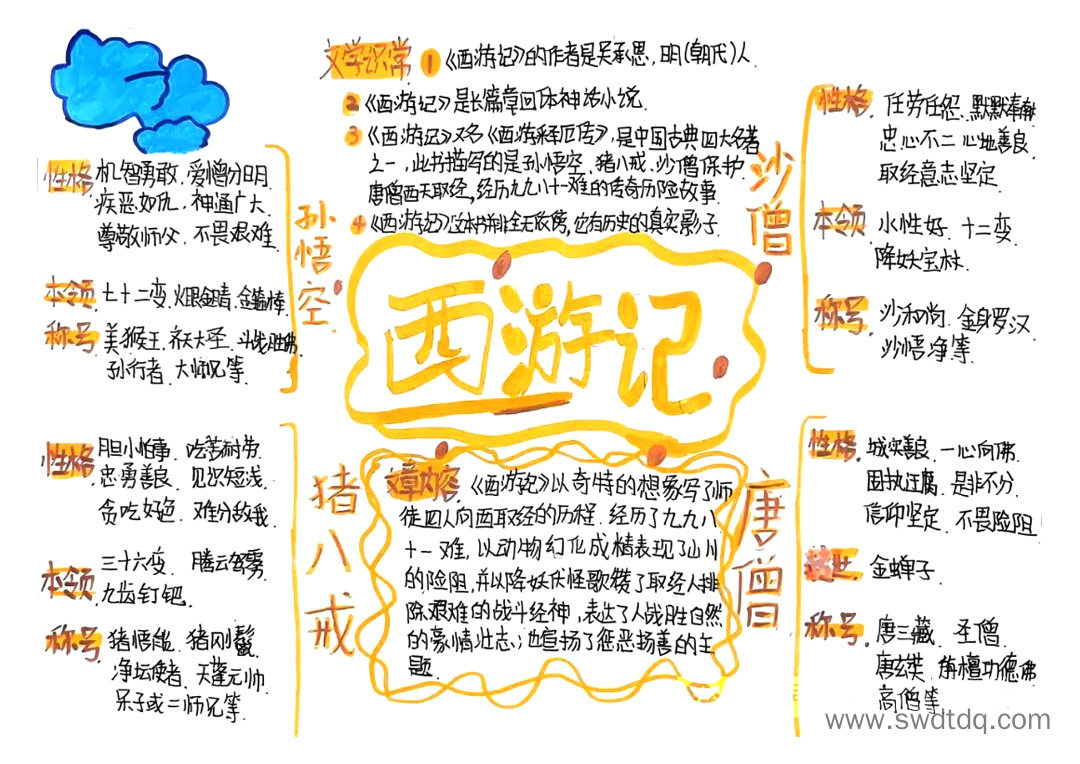 文学识常 1《西游记》的作者是吴承恩,明(朝代)人.
2《西游记》是长篇章回体神话小说.
3《西游记》又名《西游释厄传》,是中国古典四大名著
之一,此书描写的是孙悟空.猪八戒.沙僧保护
唐僧西天取经,经历九九八十一难的传奇历险故事
4《西游记》这本书并全无依据,它有历史的真实影子.
西游记
孙悟空
性格 机智勇敢.爱憎分明
疾恶如仇.神通广大.
尊敬师父.不畏艰难.
本领 七十二变.火眼金睛.金箍棒
称号 美猴王.齐天大圣.斗战胜佛
孙行者.大师兄等.
沙僧
性格 任劳任怨.默默奉献
忠心不二 心地善良.
取经意志坚定.
本领 水性好.十二变.
降妖宝杖.
称号 沙和尚.金身罗汉
沙悟净等.
猪八戒
性格 胆小怕事.吃苦耐劳.
忠勇善良.见识短浅.
贪吃好色.难分敌我.
本领 三十六变.腾云驾雾.
九齿钉钯.
称号 猪悟能.猪刚鬣
净坛使者.天蓬元帅.
呆子或二师兄等.
文章内容《西游记》以奇特的想象写了师
徒四人向西取经的历程.经历了九九八
十一难,以动物幻化成精表现了山川
的险阻,并以降妖伏怪歌赞了取经人排
除艰难的战斗经神,表达了人战胜自然
的豪情壮志;也宣扬了惩恶扬善的主
题.
唐僧
性格 诚实善良.一心向佛.
固执迂腐.是非不分.
信仰坚定.不畏险阻.
世 金蝉子.
称号 唐三藏.圣僧.
唐玄奘.旃檀功德佛
高僧等
www.swdtdq.com